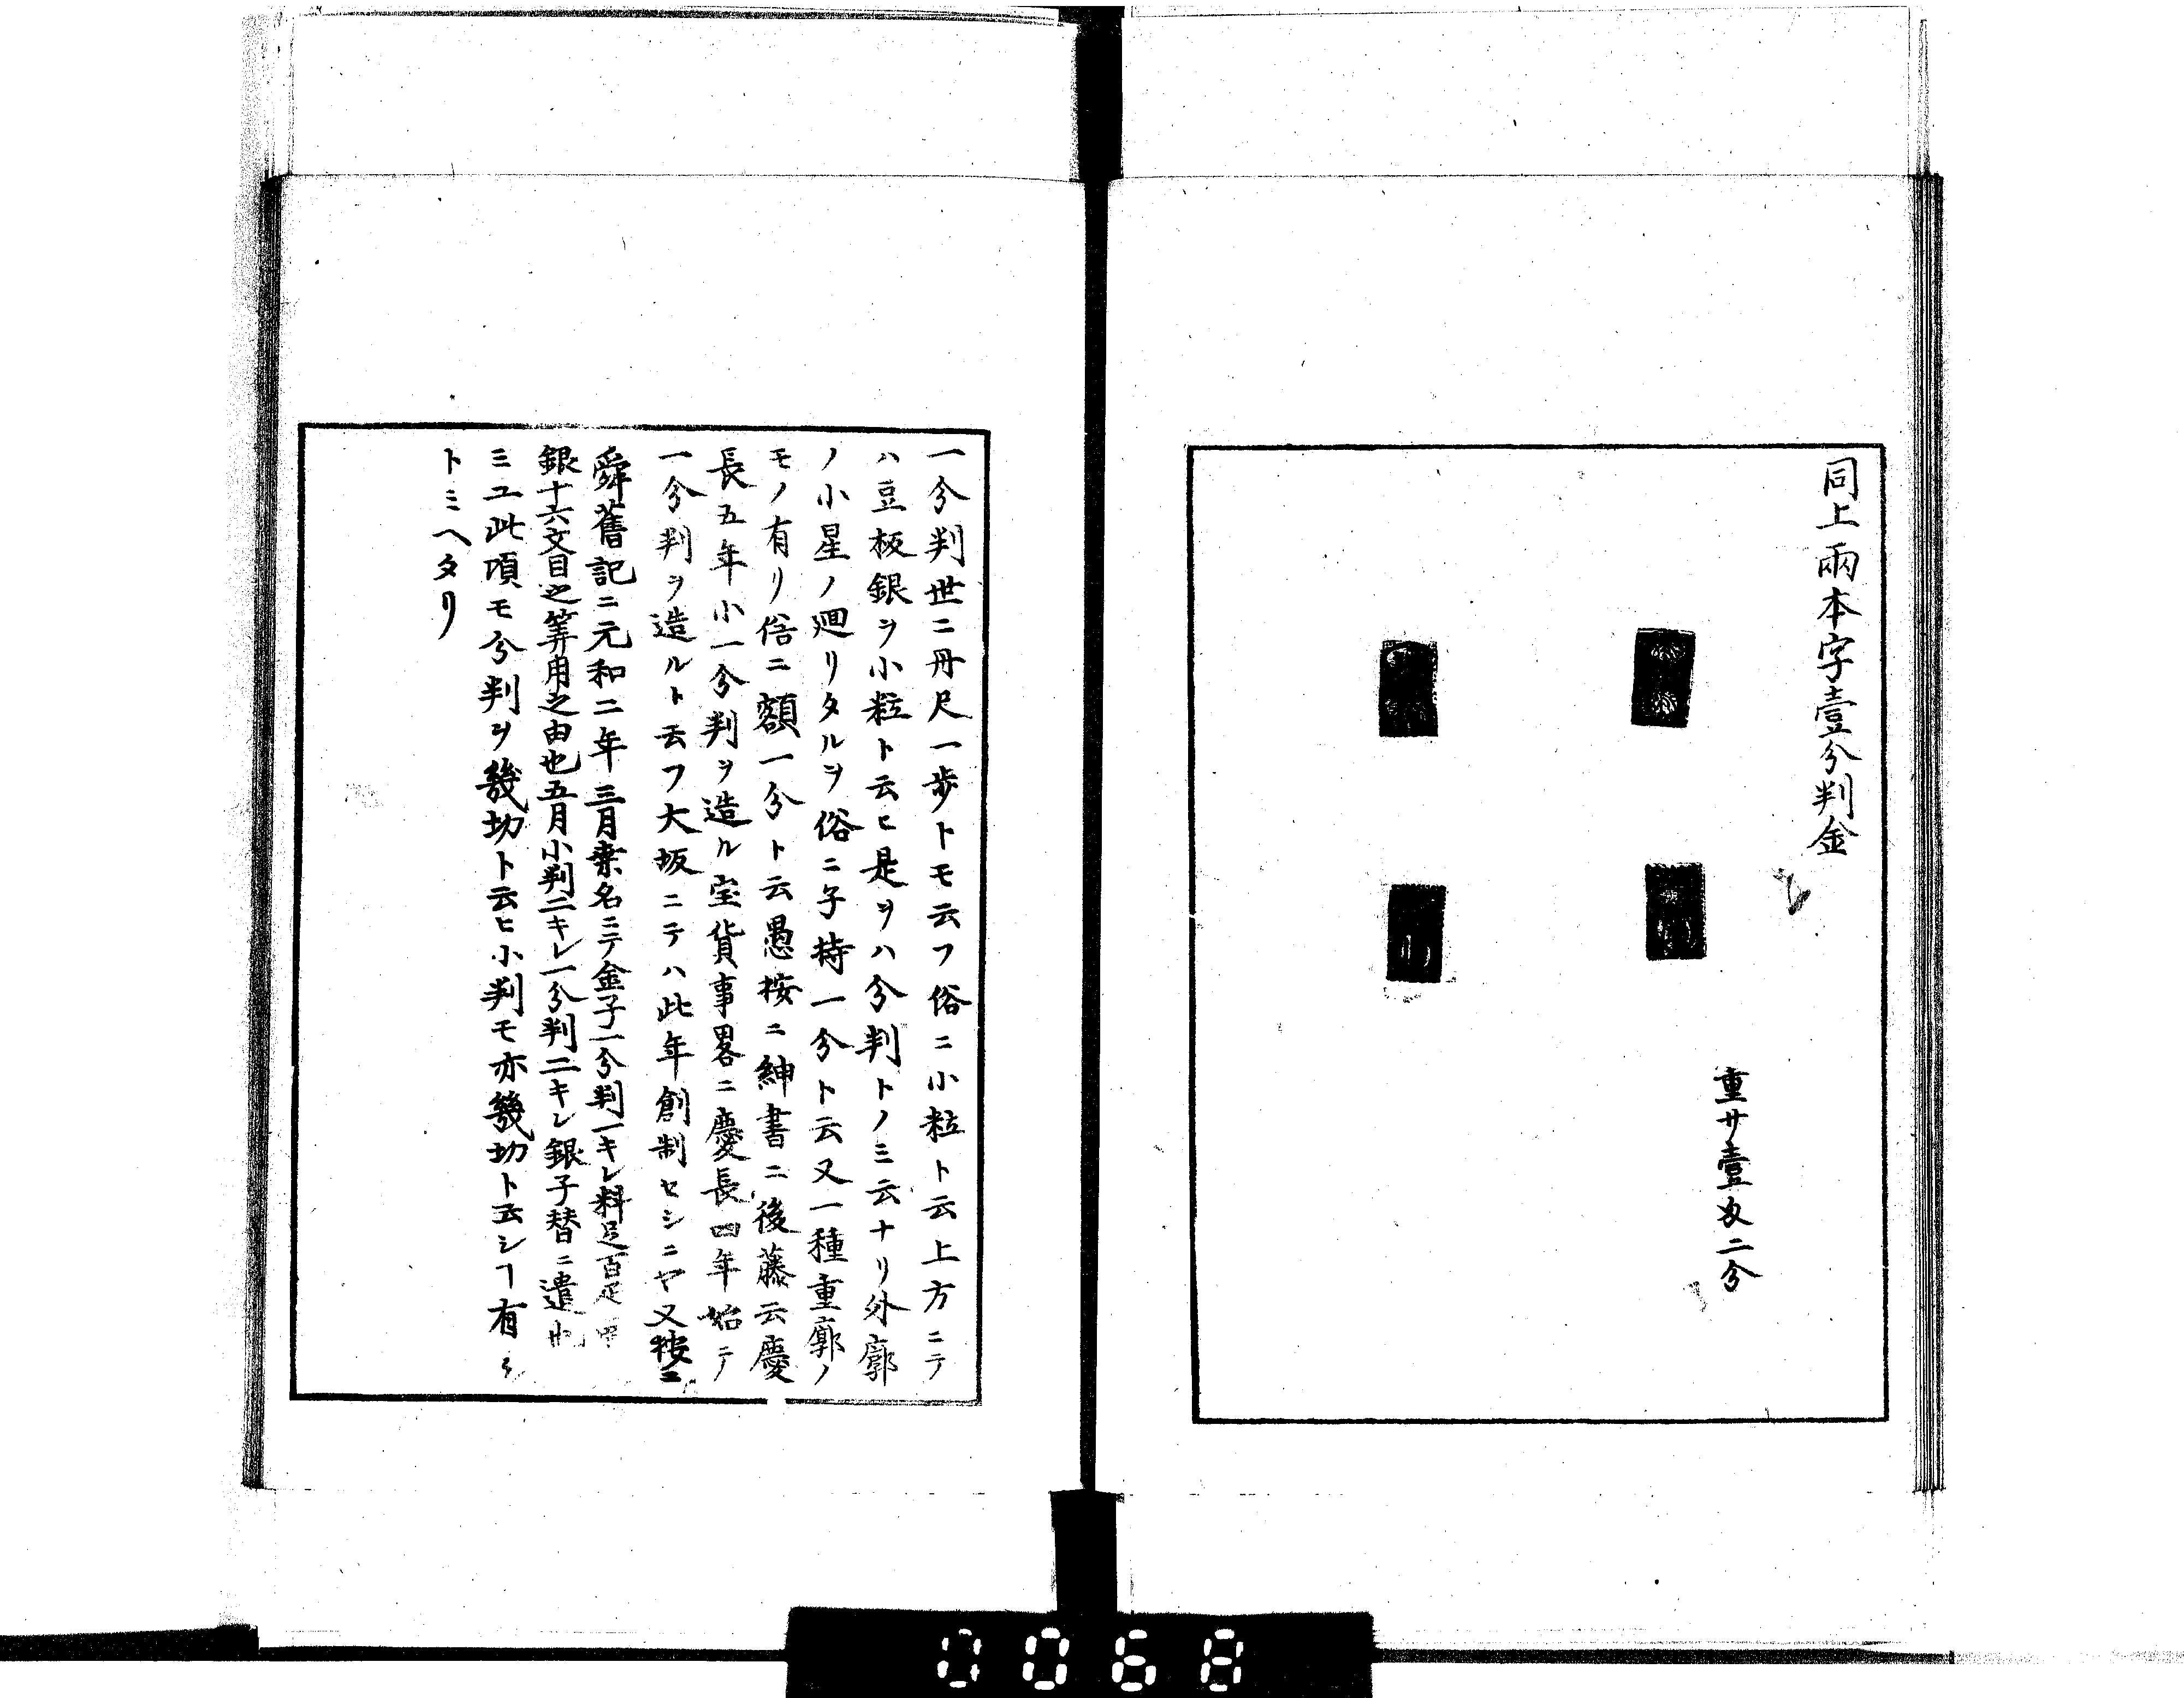 同上兩本字壹分判金
重サ壹匁二分
一分判世ニ丹尺一歩トモ云フ俗ニ小粒ト云上方ニテ
ハ豆板銀ヲ小粒ト云ヒ是ヲハ分判トノミ云ナリ外廓
ノ小星ノ廻リタルヲ俗ニ子持一分ト云又一種重廓ノ
モノ有リ俗ニ額一分ト云愚按ニ紳書ニ後藤云慶
長五年小一分判ヲ造ル宝貨事畧ニ慶長四年始テ
一分判ヲ造ルト云フ大坂ニテハ此年創制セシニヤ又按ニ
舜舊記ニ元和二年三月桑名ニテ金子一分判一キレ料足百疋
銀十六文目之筭用之由也五月小判二キレ一分判二キレ銀子替ニ遣也
ミユ此項モ分判ヲ幾切ト云ヒ小判モ亦幾切ト云シヿ有シ
トミヘタリ
0068